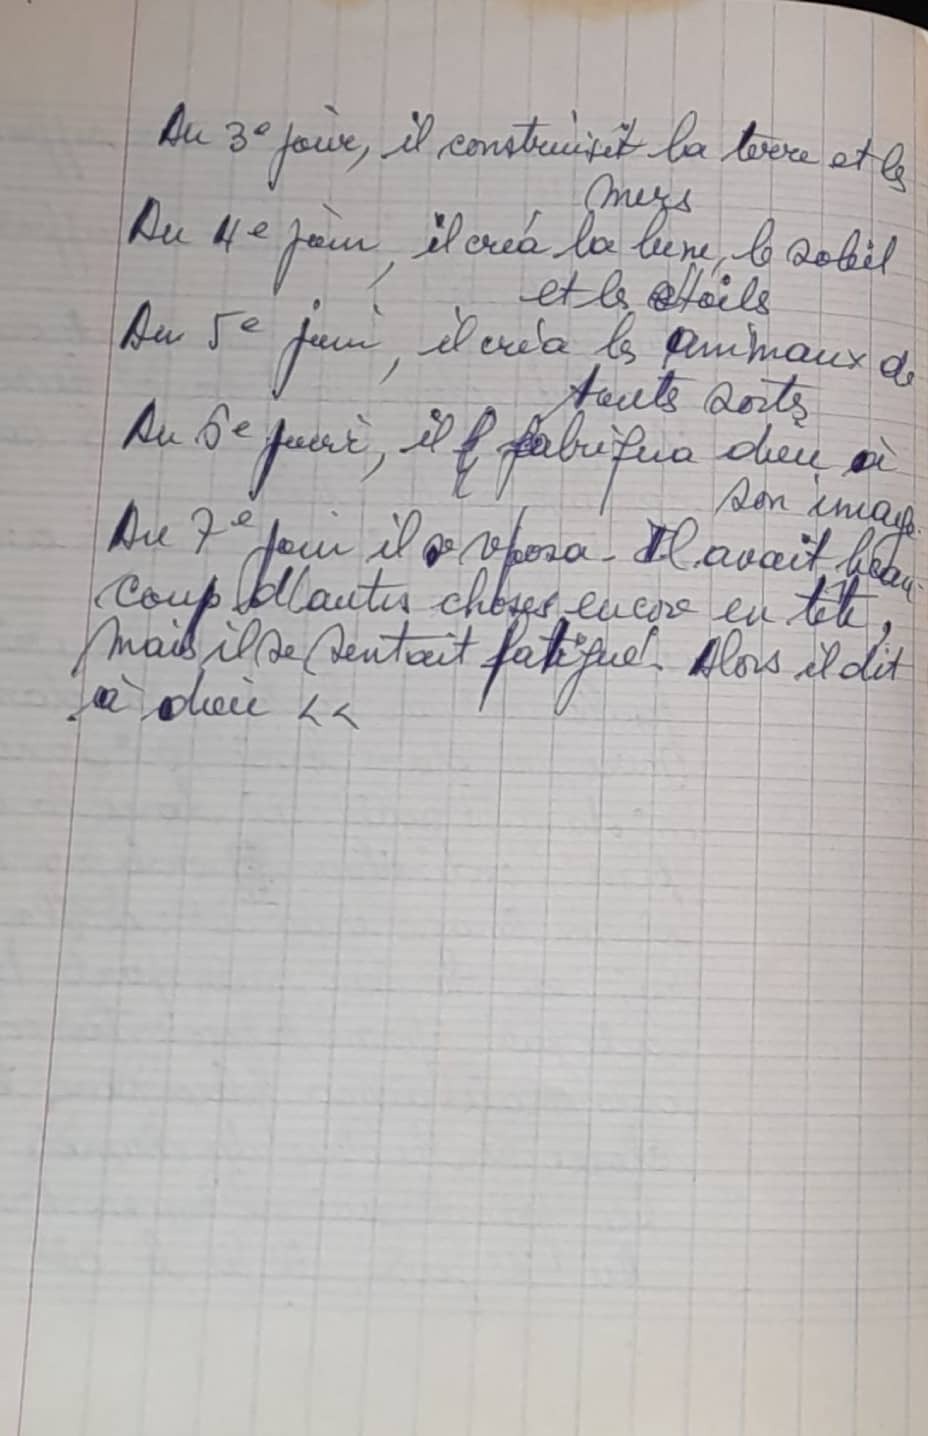 Au 3e jour, il construisit la terre et les
mers
Au 4e jour, il créa la lune, le soleil
et les étoiles
Au 5e jour, il créa les animaux de
toutes sortes
Au 6e jour, il fabriqua dieu à
son image.
Au 7e jour il se reposa. Il avait beau-
coup d'autres choses encore en tête,
mais il se sentait fatigué. Alors il dit
à dieu <<